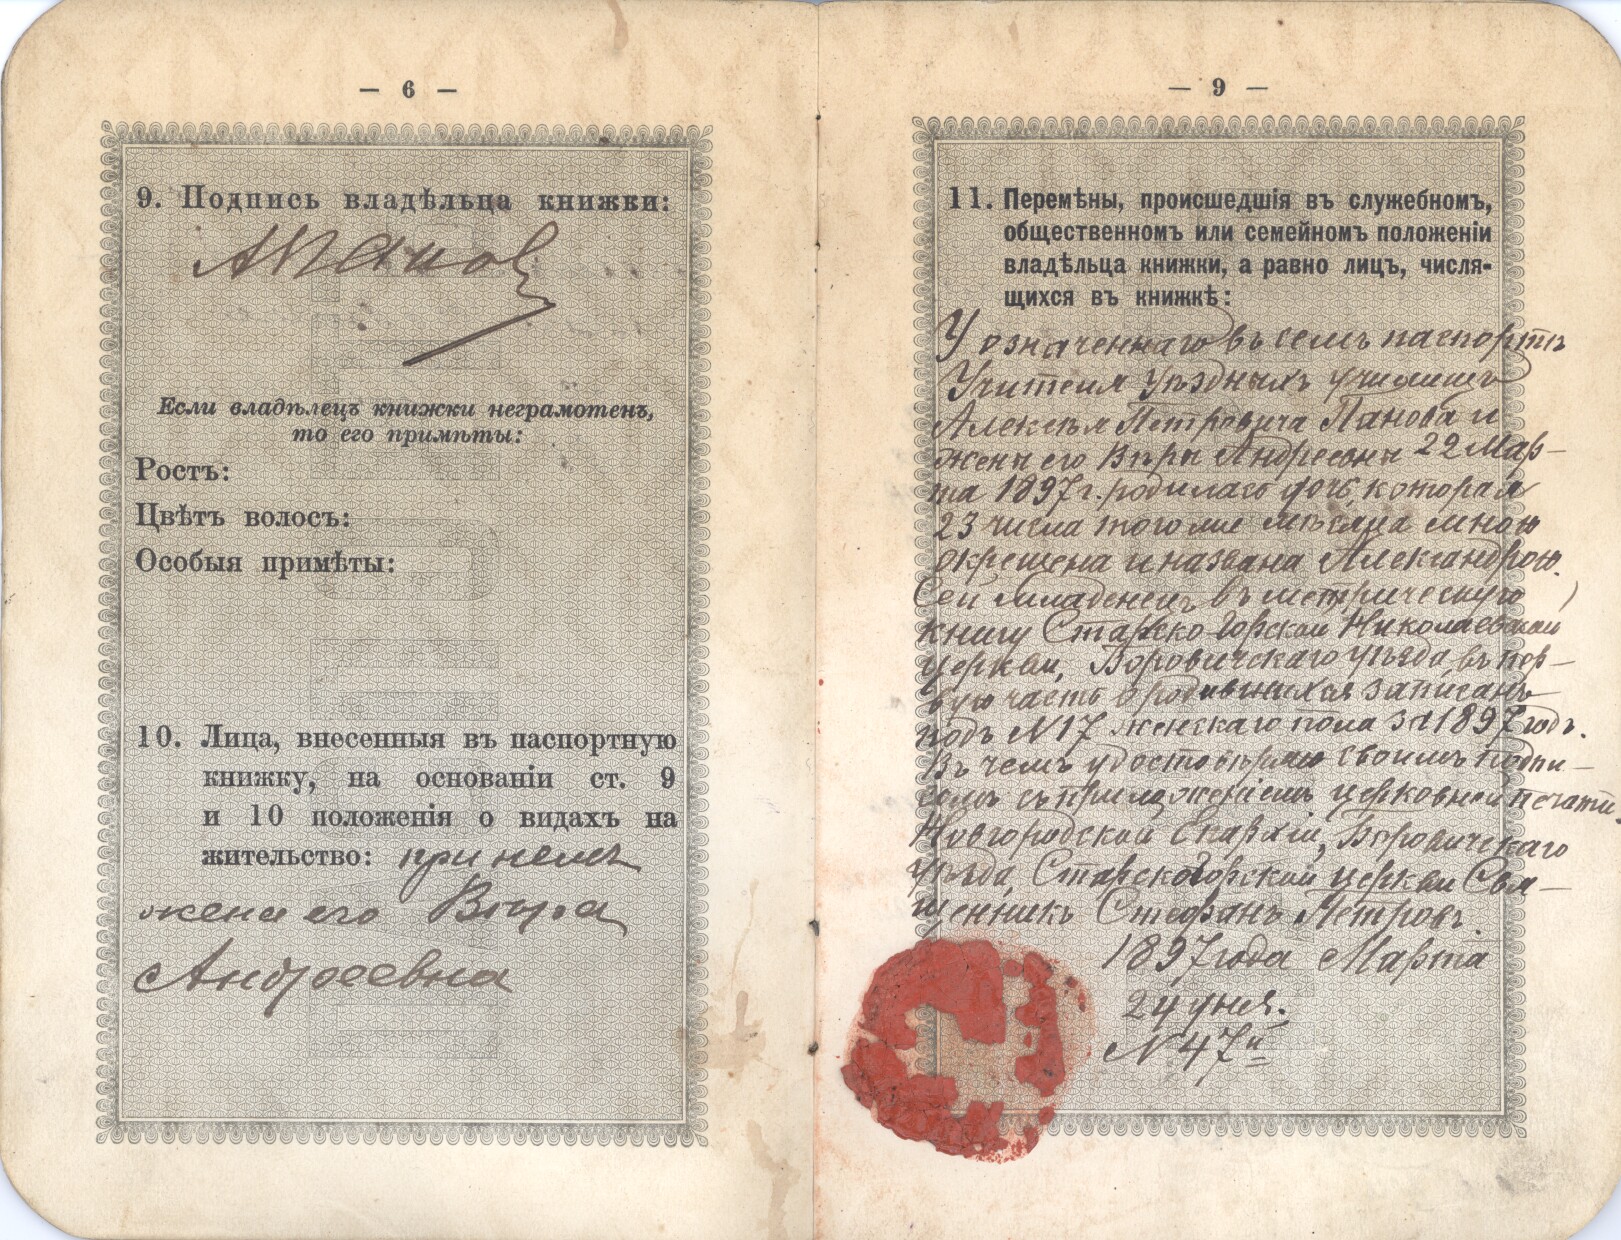 — 6 —
9. Подпись владѣльца книжки:
АПановъ
Если владѣлецъ книжки неграмотенъ,
то его примѣты:
Ростъ:
Цвѣтъ волосъ:
Особыя примѣты:
10. Лица, внесенныя въ паспортную
книжку, на основаніи ст. 9
и 10 положенія о видахъ на
жительство: при немъ
жена его Вѣра
Андреевна
— 9 —
11. Перемѣны, происшедшія въ служебномъ,
общественномъ или семейномъ положеніи
владѣльца книжки, а равно лицъ, числя-
щихся въ книжкѣ:
У означеннаго въ семъ паспортѣ
Учителя Уѣздныхъ училищъ
Алексѣя Петровича Панова и
жены его Вѣры Андреевны 22 Мар-
та 1897 г. родилась дочь, которая
23 числа того же мѣсяца мною
окрещена и названа Александрою.
Сей младенецъ въ метрическую
книгу Старско-Горской Николаевской
церкви, Боровичскаго уѣзда въ пер-
вую часть о родившихся записанъ
подъ N 17 женскаго пола за 1897 годъ.
Въ чемъ удостовѣряю своимъ подпи-
сомъ съ приложеніемъ церковной печати.
Новгородской Епархіи, Боровичскаго
уѣзда, Старскогорской церкви Свя-
щенникъ Стефанъ Петровъ.
1897 года Марта
24 дня.
N 47й